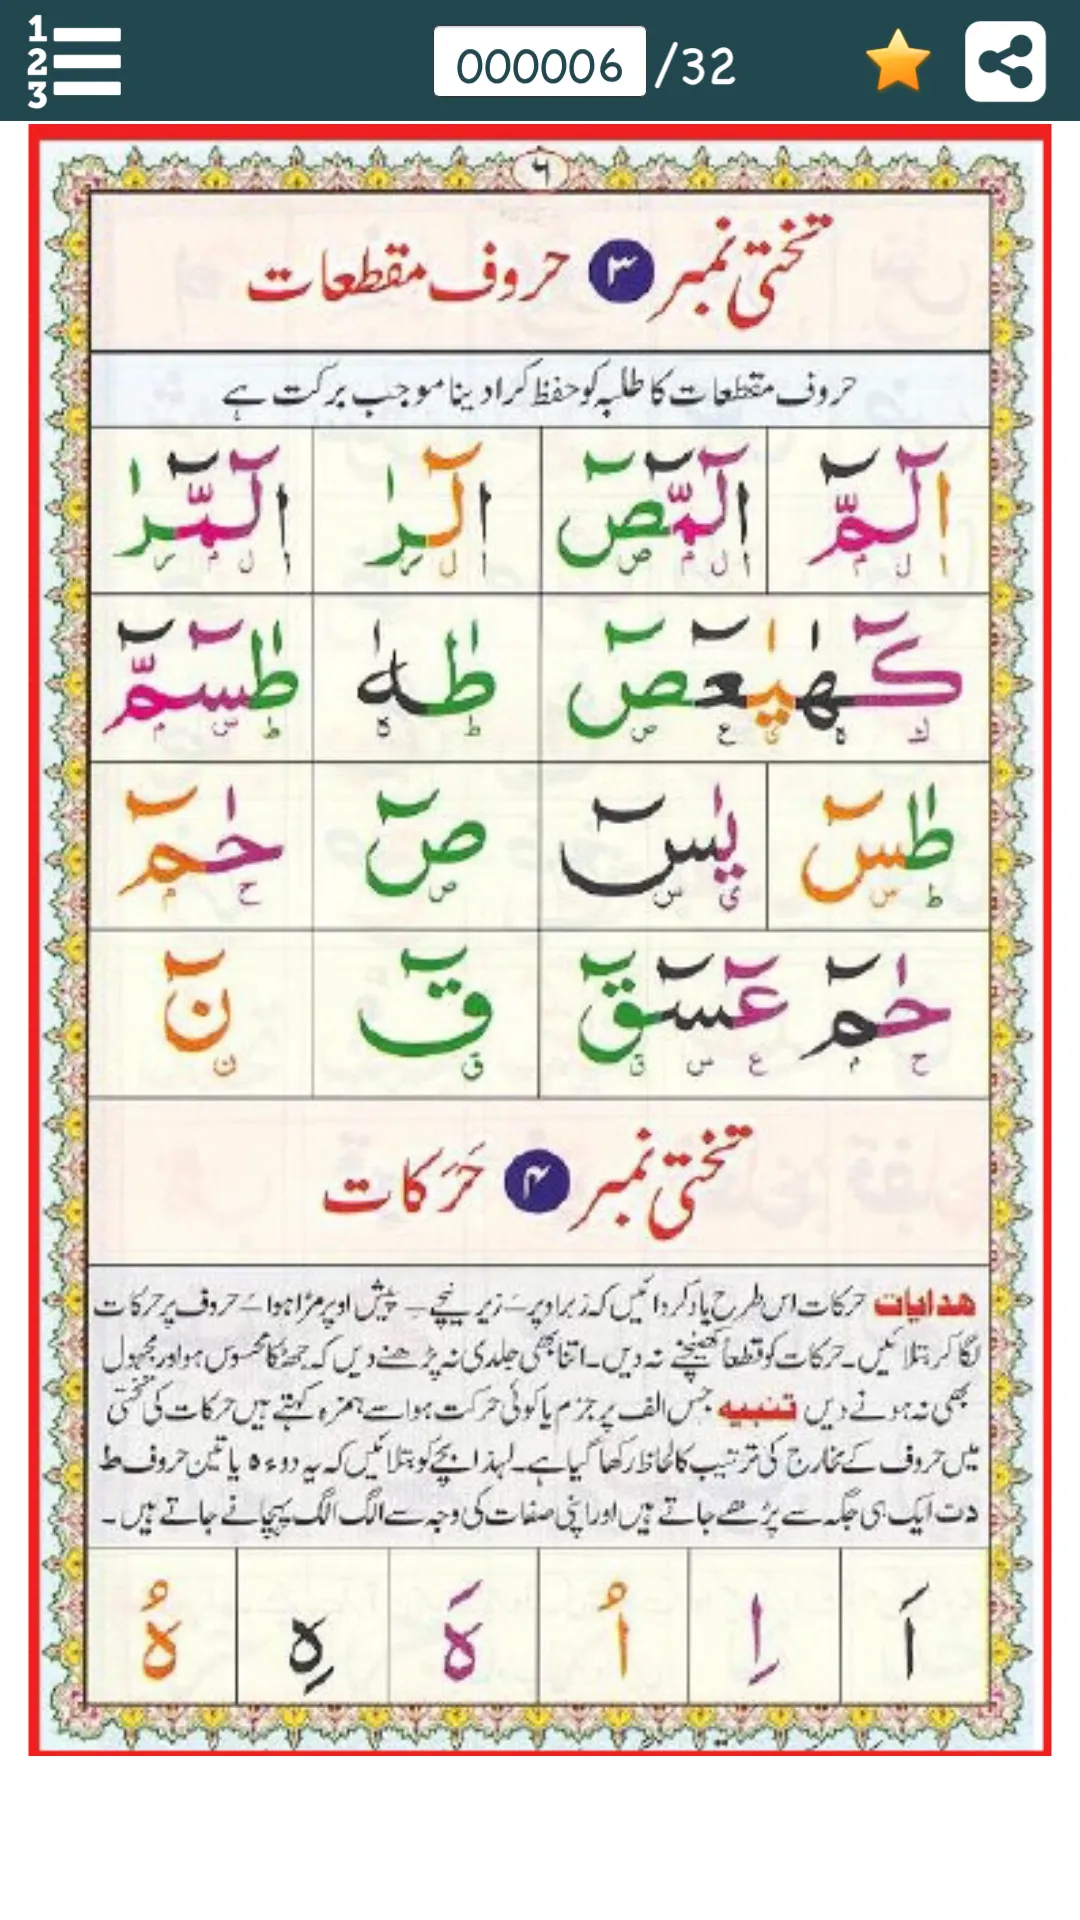 1
2
3
000006 /32
٦
تختی نمبر ۳ حروف مقطعات
حروف مقطعات کا طلبہ کو حفظ کرا دینا موجب برکت ہے
الٓمّٓ الٓمّٓصٓ الٓرٰ الٓمّٓرٰ
ا ل م ا ل م ص ا ل ر ا ل م ر
کٓهٰیٰعٓصٓ طٰهٰ طٰسٓمّٓ
ك ه ی ع ص ط ه ط س م
طٰسٓ یٰسٓ صٓ حٰمٓ
ط س ی س ص ح م
حٰمٓ عٓسٓقٓ قٓ نٓ
ح م ع س ق ق ن
تختی نمبر ۴ حَرَکات
ھدایات حرکات اس طرح یاد کروائیں کہ زبر اوپر ـَ زیر نیچے ـِ پیش اوپر مڑا ہوا ـُ حروف پر حرکات
لگا کر بتلائیں۔ حرکات کو قطعاً کھینچنے نہ دیں۔ اتنا بھی جلدی نہ پڑھنے دیں کہ جھٹکا محسوس ہو اور مجہول
بھی نہ ہونے دیں تنبیہ جس الف پر جزم یا کوئی حرکت ہو اسے ہمزہ کہتے ہیں حرکات کی تختی
میں حروف کے مخارج کی ترتیب کا لحاظ رکھا گیا ہے۔ لہذا بچے کو بتلائیں کہ یہ دو ء ہ یا تین حروف ط
د ت ایک ہی جگہ سے پڑھے جاتے ہیں اور اپنی صفات کی وجہ سے الگ الگ پہچانے جاتے ہیں۔
اَ اِ اُ هَ هِ هُ